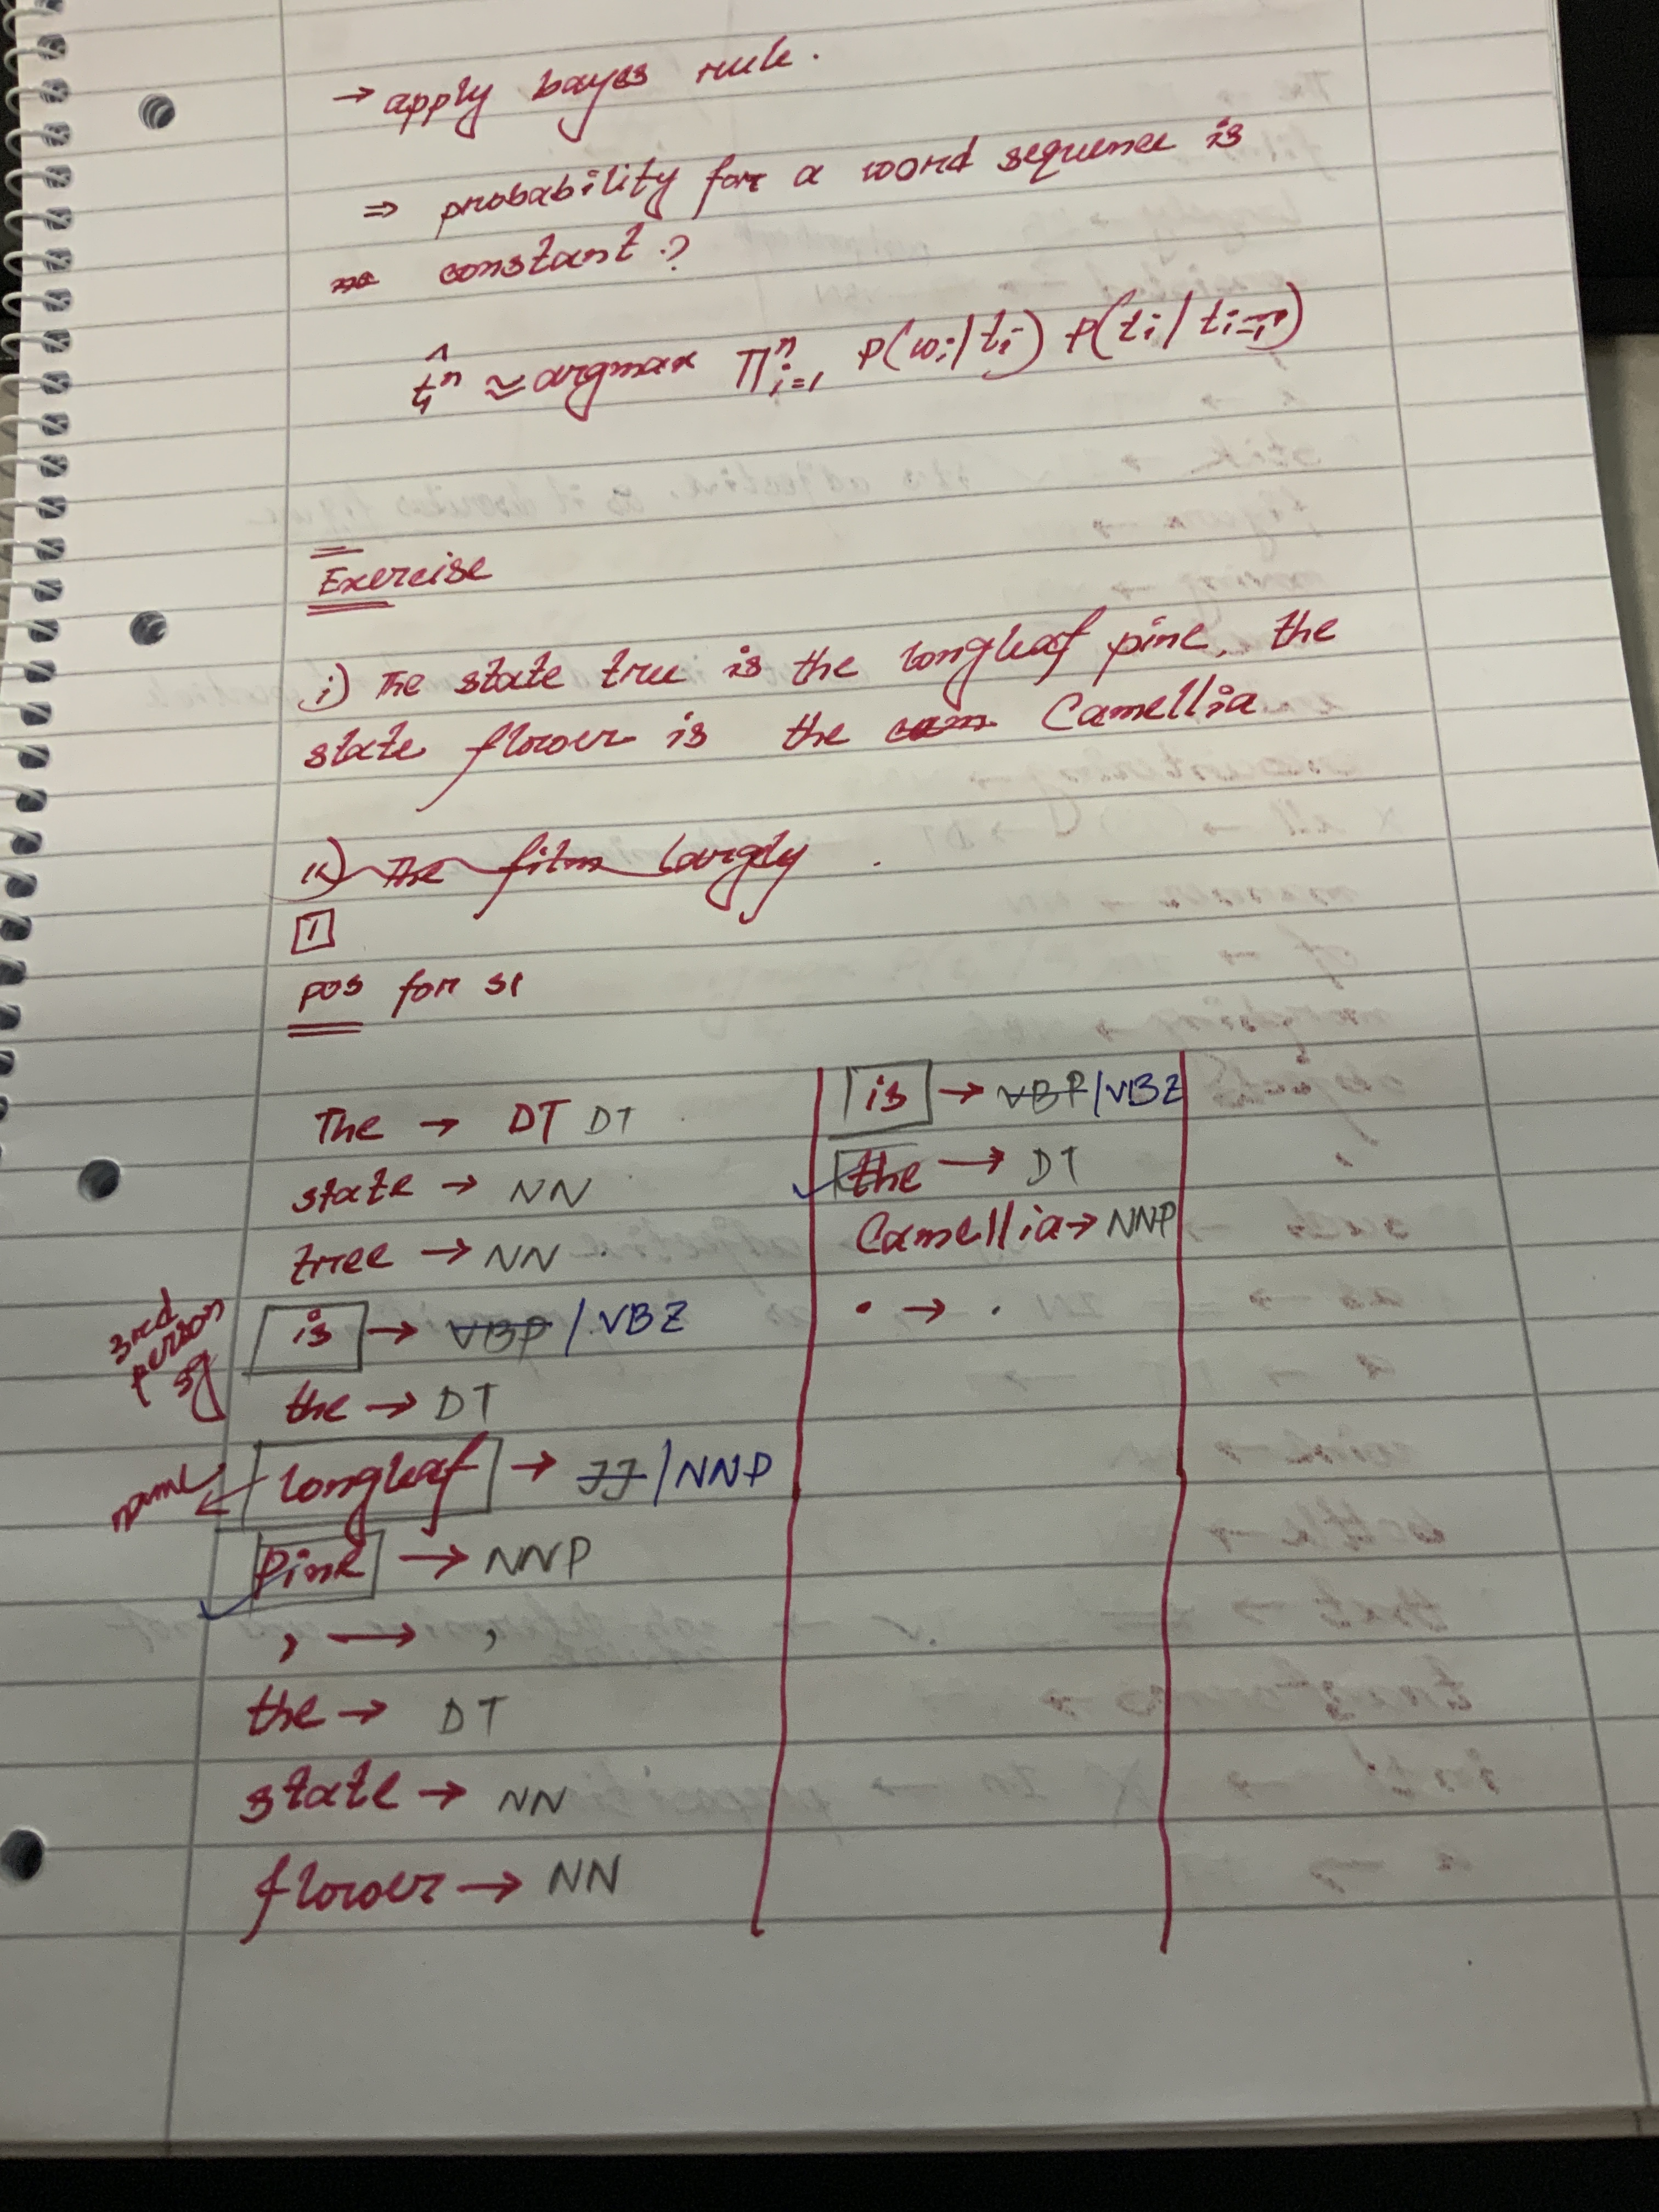 → apply bayes rule.
⇒ probability for a word sequence is
constant?
t̂₁ⁿ ≈ argmax ∏ⁿᵢ₌₁ P(wᵢ|tᵢ) P(tᵢ|tᵢ₋₁)
Exercise
i) The state tree is the longleaf pine, the
state flower is the cam Camellia
ii) The film largly .
1
POS for S1
The → DT DT
state → NN
tree → NN
3rd person sg
is → VBP / VBZ
the → DT
name ← longleaf → JJ / NNP
Pine → NNP
, → ,
the → DT
state → NN
flower → NN
is → VBP / VBZ
the → DT
Camellia → NNP
. → .